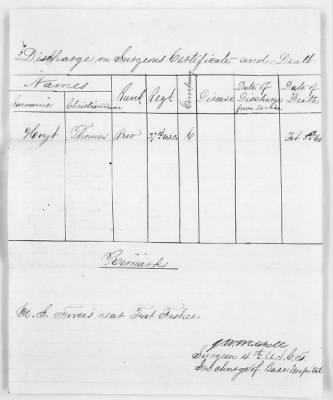 Discharge on Surgeons Certificate and Death.
Names
Surname Christianname Rank Regt. Company Disease Date of Discharge from service Date of Death
Hoyt Thomas Priv 27th USC C Feb 5th 65
Remarks
U.S. Forces near Fort Fisher
Surgeon 4th U.S.C.T.
In charge of Base Hospital